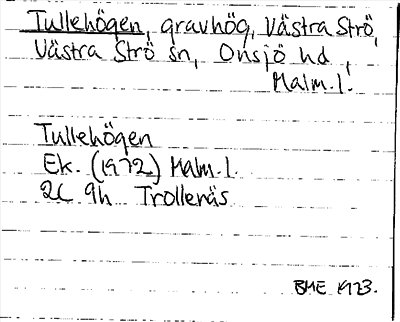 Tullehögen, gravhög, Västra Strö,
Västra Strö sn, Onsjö hd,
Malm.l.
Tullehögen
Ek. (1972) Malm.l.
2C 9h Trollenäs
BME 1973.